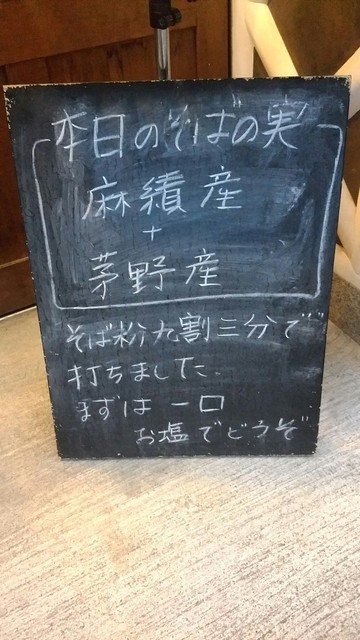 本日のそばの実
麻績産
+
茅野産
そば粉九割三分で
打ちました
まずは一口
お塩でどうぞ